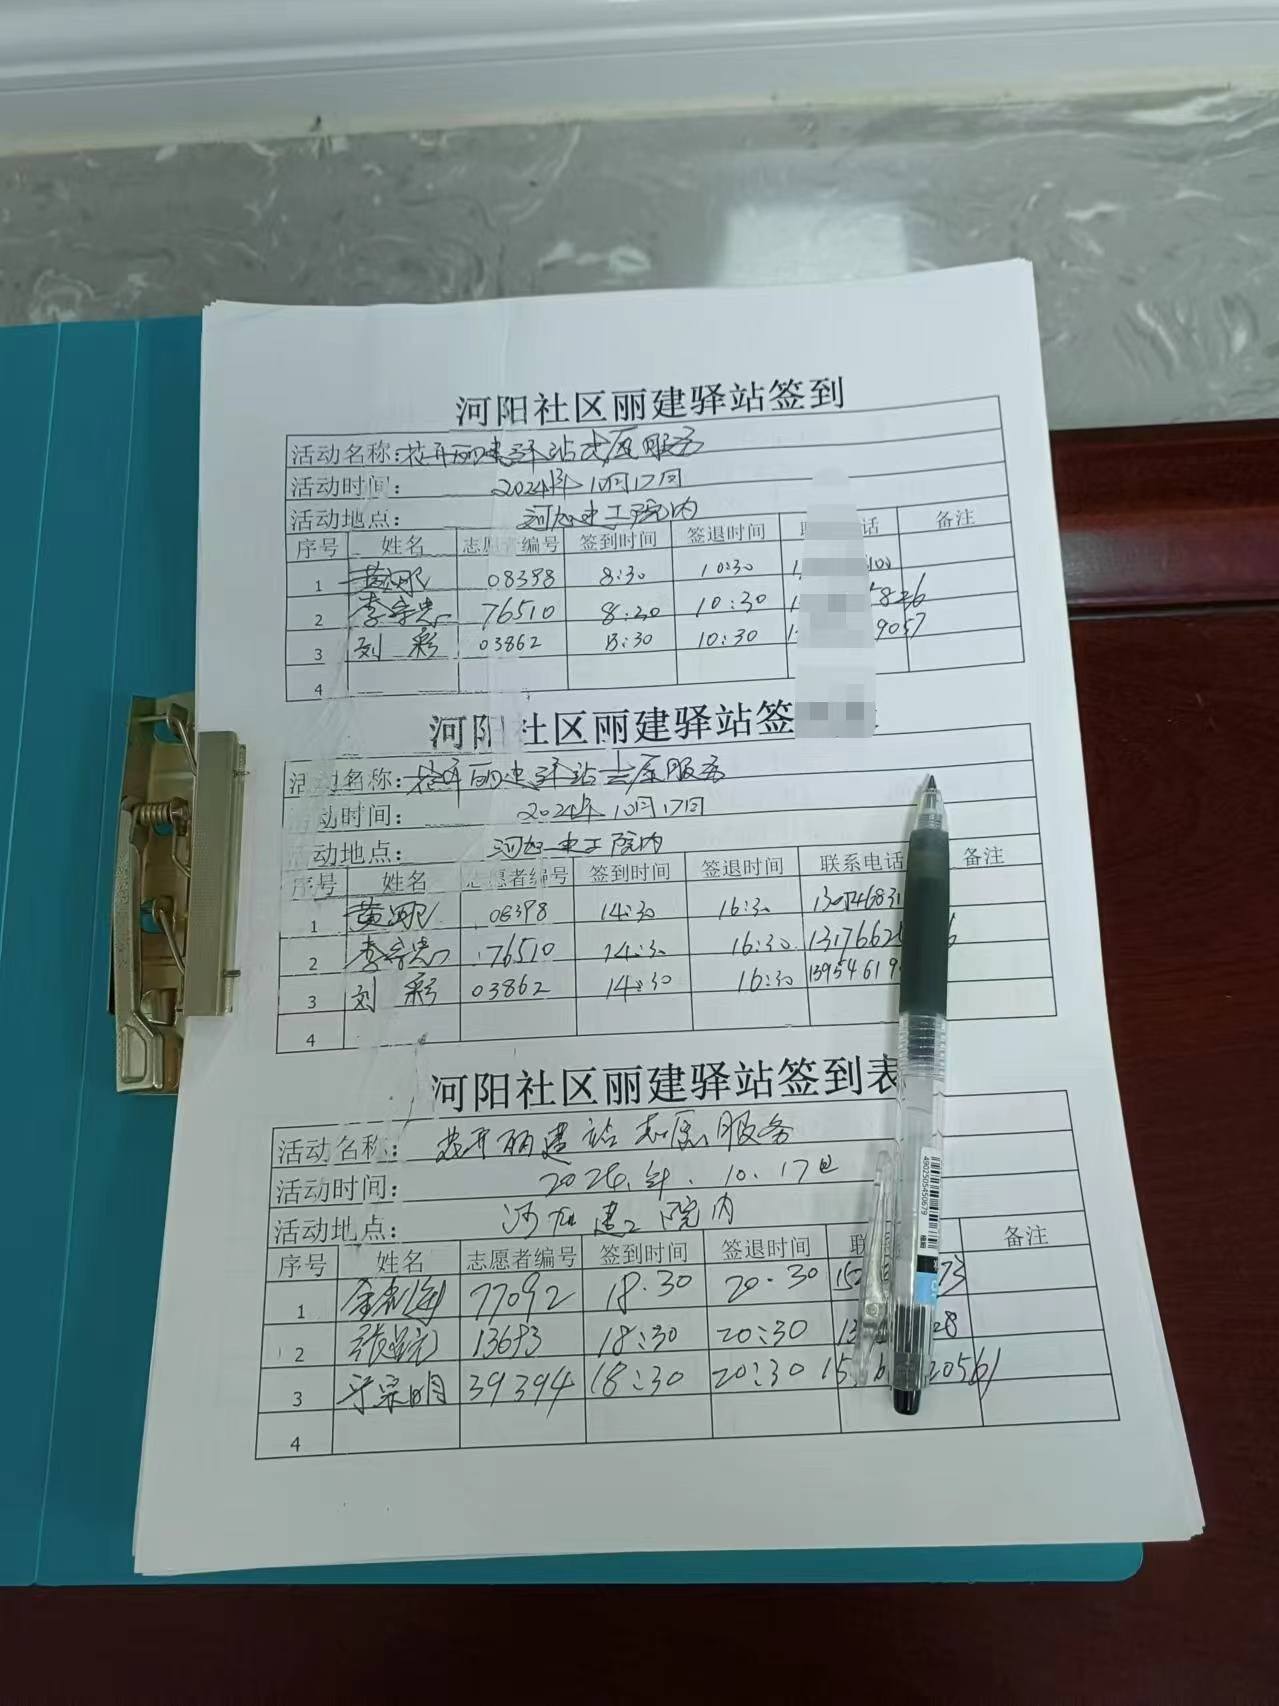 河阳社区丽建驿站签到
活动名称：花开丽建驿站志愿服务
活动时间： 2024年10月17日
活动地点： 河阳建工院内
序号 姓名 志愿者编号 签到时间 签退时间 话 备注
1 08398 8:30 10:30
2 李宗忠 76510 8:30 10:30 836
3 刘彩 03862 8:30 10:30 9057
4
河阳社区丽建驿站签
活动名称：花开丽建驿站志愿服务
活动时间： 2024年10月17日
活动地点： 河阳建工院内
序号 姓名 志愿者编号 签到时间 签退时间 联系电话 备注
1 08398 14:30 16:30
2 李宗忠 76510 14:30 16:30 1317662 6
3 刘彩 03862 14:30 16:30 13954619
4
河阳社区丽建驿站签到表
活动名称： 花开丽建站志愿服务
活动时间： 2024年.10.17日
活动地点： 河阳建工院内
序号 姓名 志愿者编号 签到时间 签退时间 联 备注
1 77092 18:30 20:30 15 73
2 13693 18:30 20:30 13 28
3 宗明 39394 18:30 20:30 15 20561
4
4902505450679